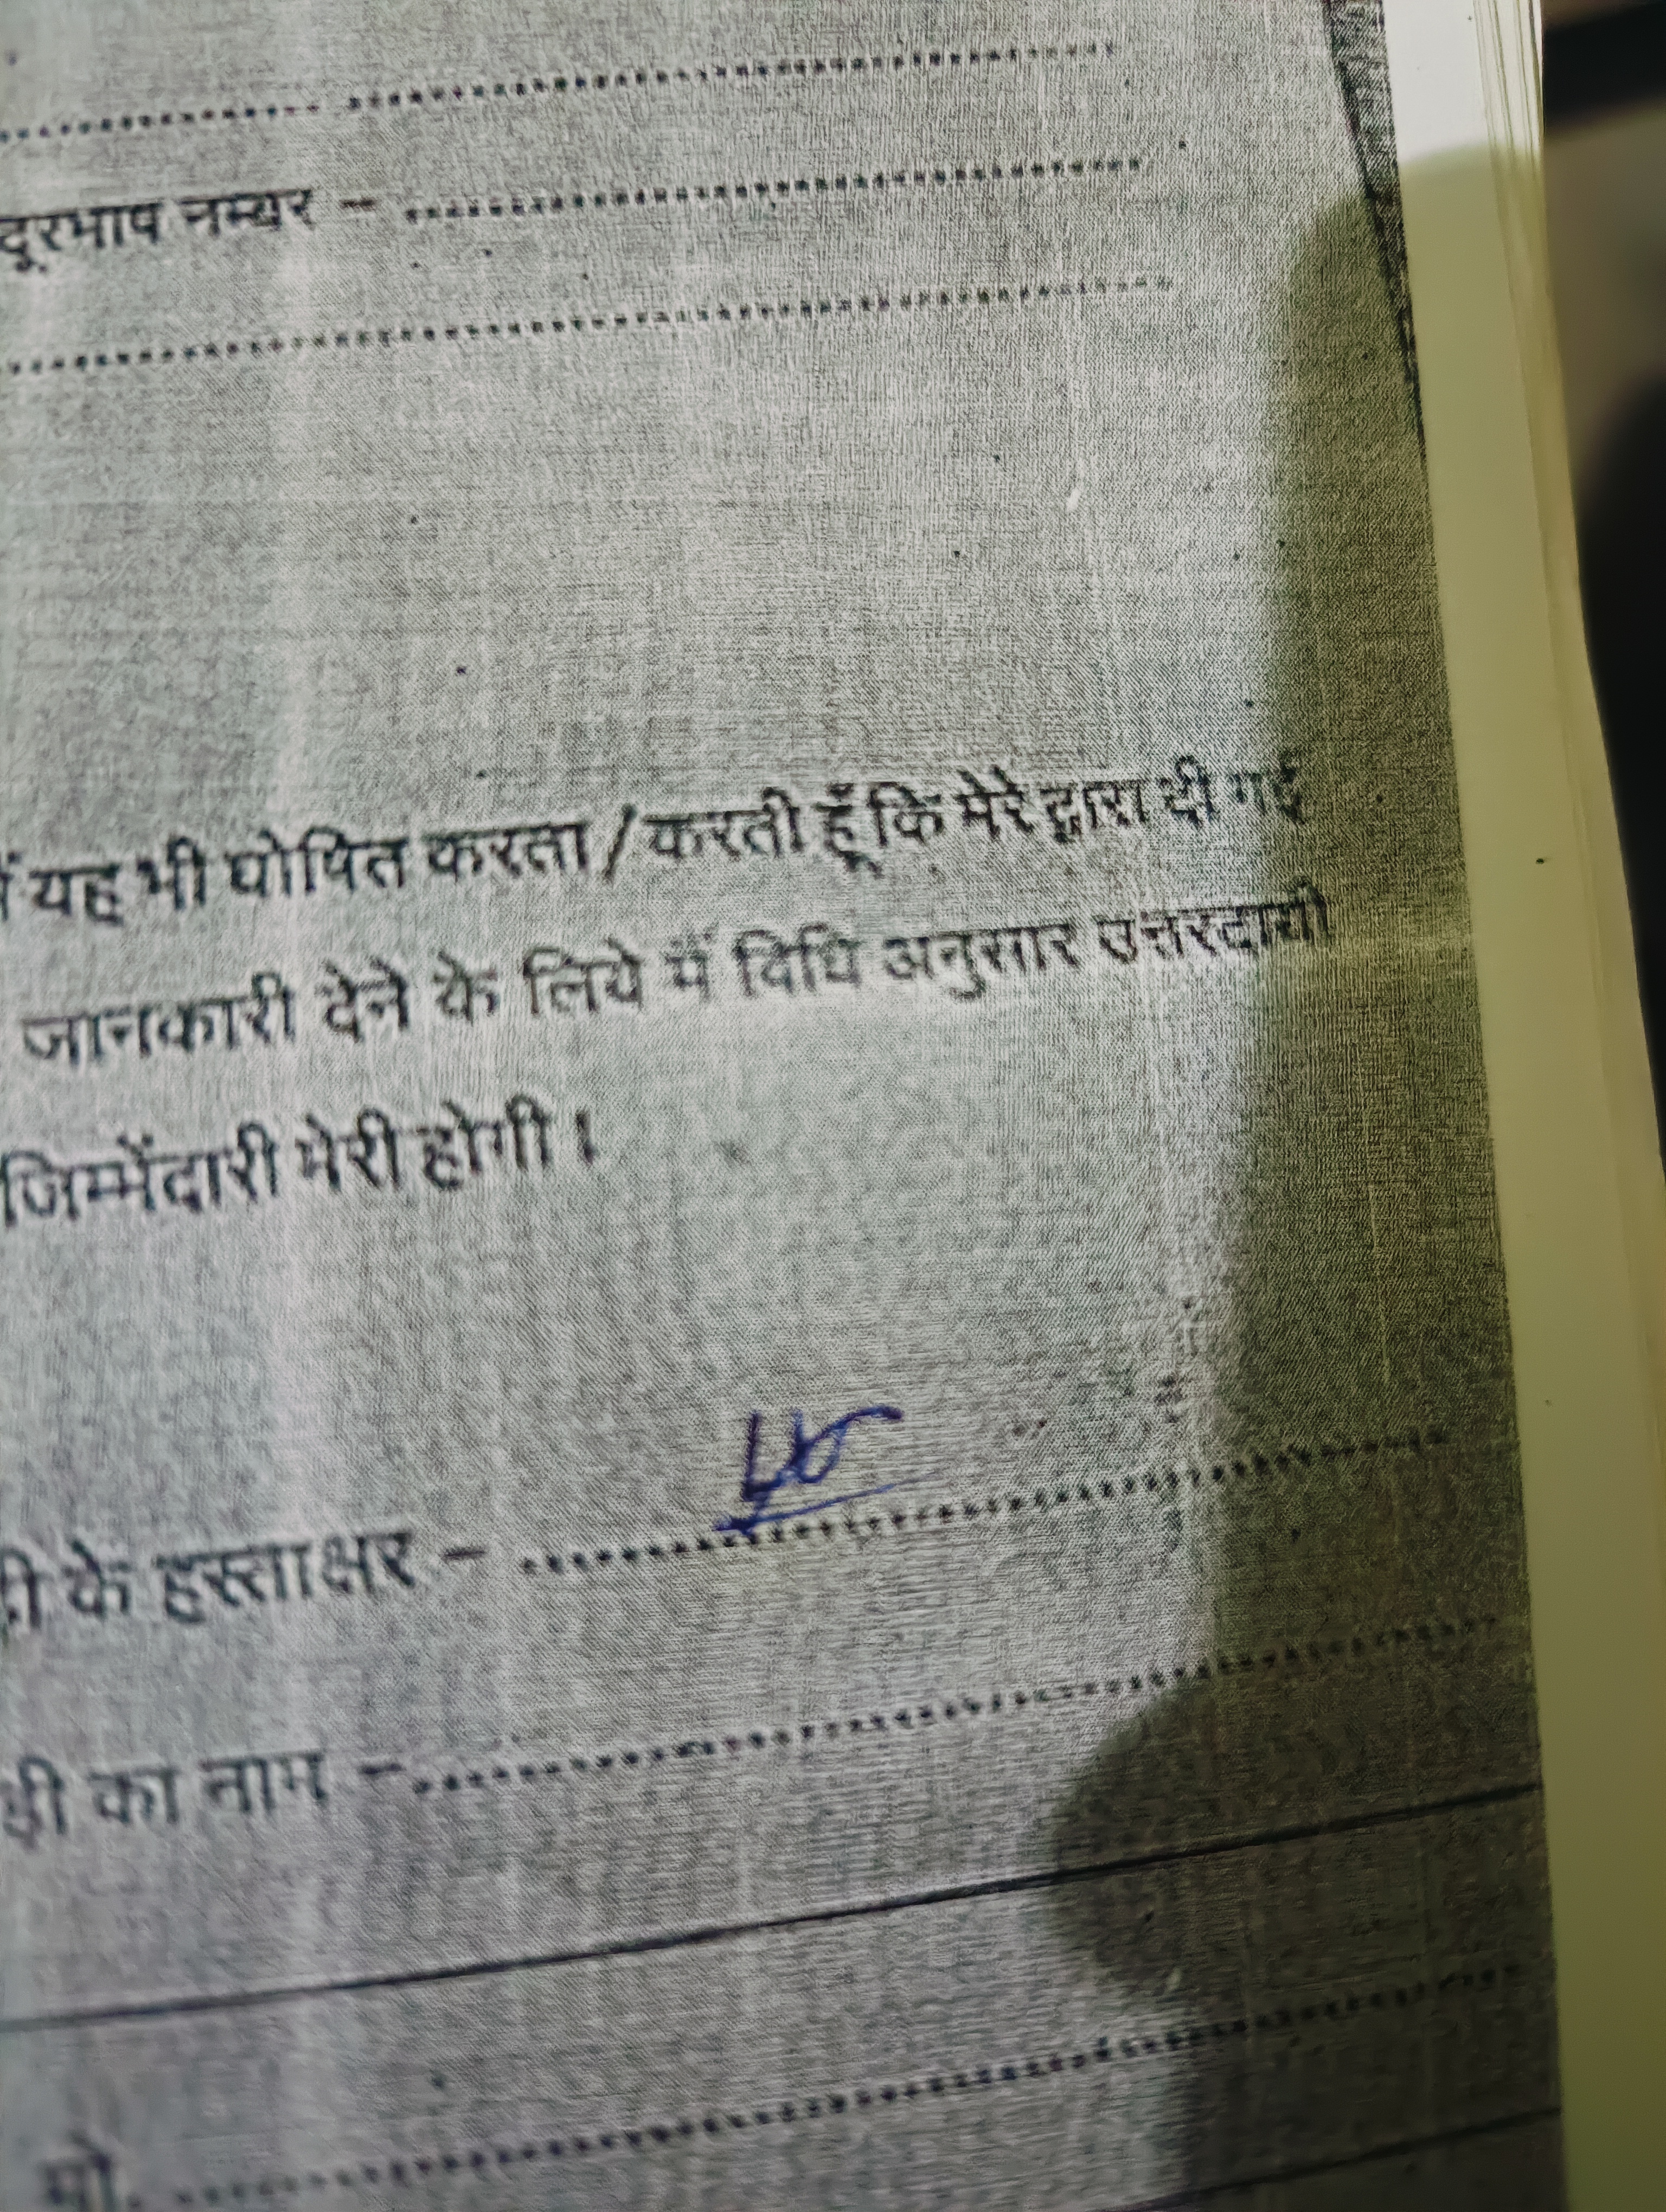 दूरभाष नम्बर - ....................
यह भी घोषित करता / करती हूँ कि मेरे द्वारा दी गई
जानकारी देने के लिये मैं विधि अनुसार उत्तरदायी
जिम्मेंदारी मेरी होगी ।
के हस्ताक्षर - ....................
का नाम - ....................
मो. ....................